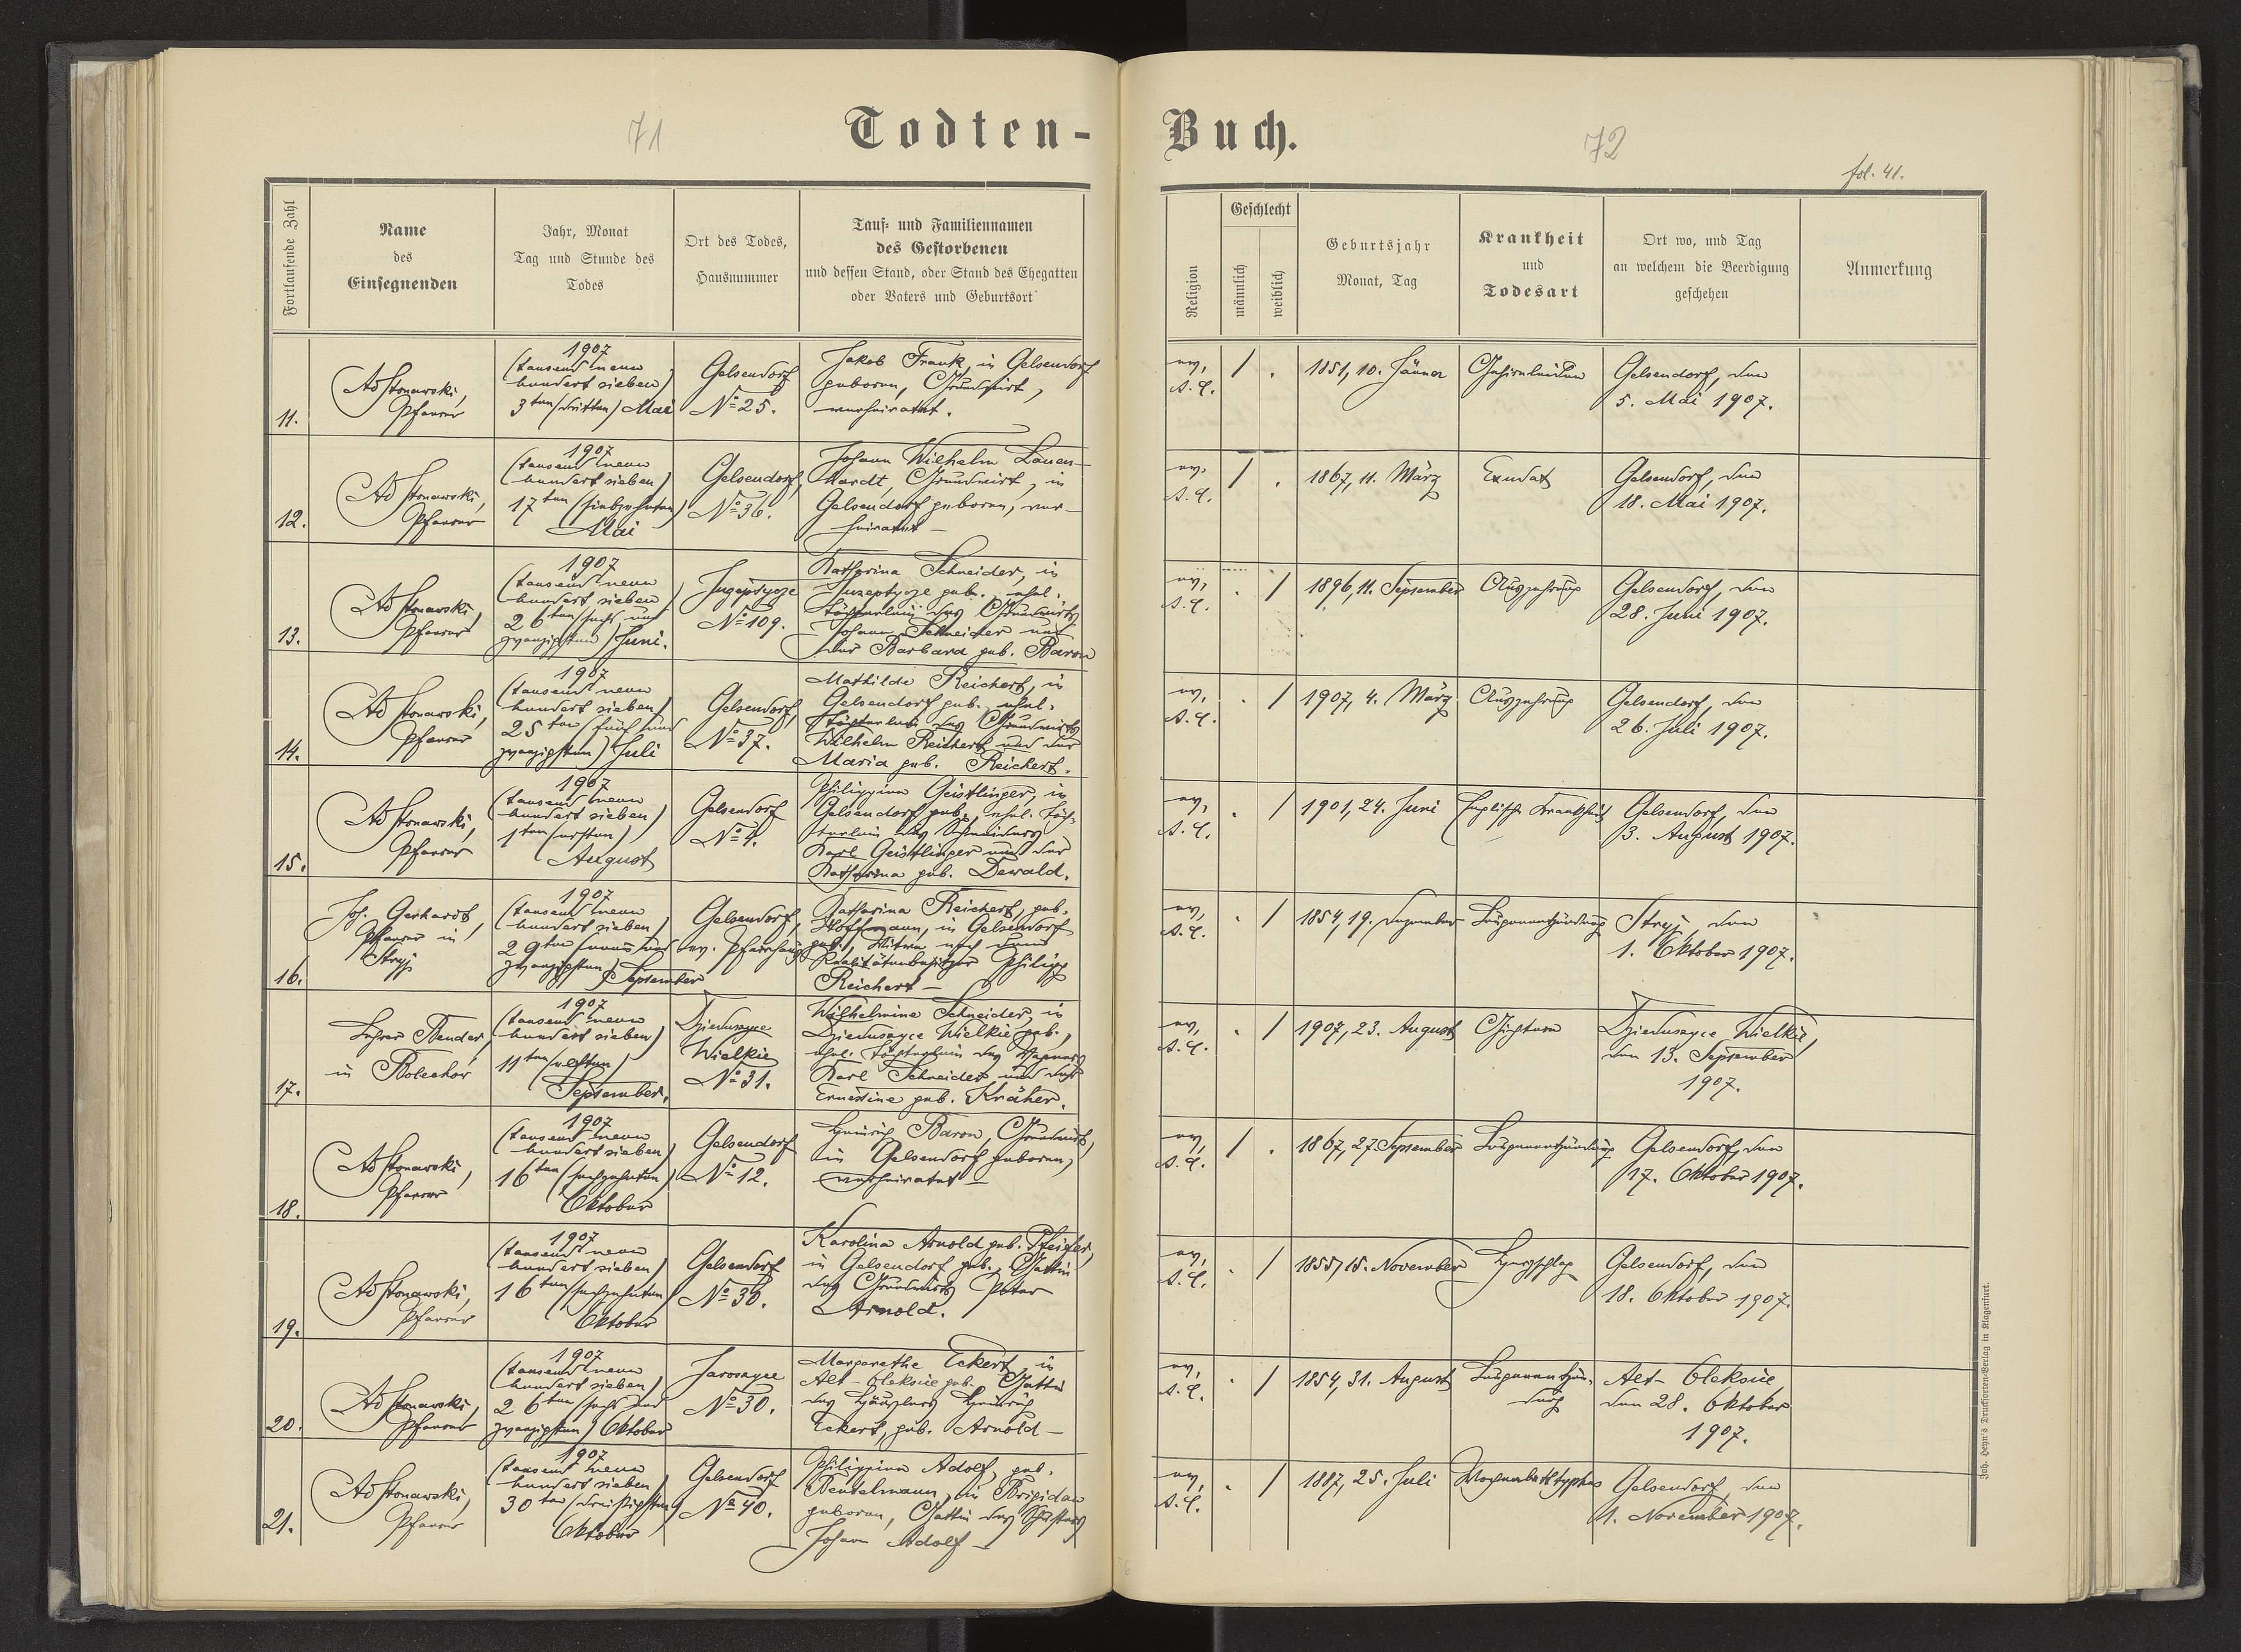 71
Todten-
Fortlaufende Zahl
Name
des
Einsegnenden
Jahr, Monat
Tag und Stunde des
Todes
Ort des Todes,
Hausnummer
Tauf- und Familiennamen
des Gestorbenen
und dessen Stand, oder Stand des Ehegatten
oder Vaters und Geburtsort
11.
Ad Stonawski,
Pfarrer
1907
(tausend neun
hundert sieben)
3ten (dritten) Mai
Gelsendorf
No 25.
Jakob Frank, in Gelsendorf
geboren, Grundwirt,
verheiratet.
12.
Ad Stonawski,
Pfarrer
1907
(tausend neun
hundert sieben)
17ten (siebzehnten)
Mai
Gelsendorf,
No 36.
Johann Wilhelm Lauen-
hardt, Grundwirt, in
Gelsendorf geboren, ver-
heiratet –
13.
Ad Stonawski,
Pfarrer
1907
(tausend neun
hundert sieben)
26ten (sechs und
zwanzigsten) Juni.
No 109.
Katharina Schneider, in
geb., ehel.
Töchterlein des Grundwirts
Johann Schneider und
der Barbara geb. Baron
14.
Ad Stonawski,
Pfarrer
1907
(tausend neun
hundert sieben)
25ten (fünf und
zwanzigsten) Juli
Gelsendorf,
No 37.
Mathilde Reichert, in
Gelsendorf geb., ehel.
Töchterlein des Grundwirts
Wilhelm Reichert und der
Maria geb. Reichert.
15.
Ad Stonawski,
Pfarrer
1907
(tausend neun
hundert sieben)
1ten (ersten)
August
Gelsendorf
No 4.
Philippine Geistlinger, in
Gelsendorf geb., ehel. Töch-
terlein des Schneiders
Karl Geistlinger und der
Katharina geb. Dewald.
16.
Joh. Gerhardt,
Pfarrer in
Stryj
1907
(tausend neun
hundert sieben)
29ten (neun und
zwanzigsten) September
Gelsendorf,
ev. Pfarrhaus
Katharina Reichert, geb.
Hoffmann, in Gelsendorf
geb., Witwe nach dem
Realitätenbesitzer Philipp
Reichert –
17.
Lehrer Bender,
in Bolechów
1907
(tausend neun
hundert sieben)
11ten (elften)
September.
Dzieduszyce
Wielkie
No 31.
Wilhelmine Schneider, in
Dzieduszyce Wielkie geb.,
ehel. Töchterlein des
Karl Schneider und der
Ernestine geb. Kräher.
18.
Ad Stonawski,
Pfarrer
1907
(tausend neun
hundert sieben)
16ten (sechzehnten)
Oktober
Gelsendorf
No 12.
Heinrich Baron, Grundwirt,
in Gelsendorf geboren,
verheiratet –
19.
Ad Stonawski,
Pfarrer
1907
(tausend neun
hundert sieben)
16ten (sechzehnten)
Oktober
Gelsendorf
No 36.
Karolina Arnold geb. Pfeifer,
in Gelsendorf geb., Gattin
des Grundwirts Peter
Arnold.
20.
Ad Stonawski,
Pfarrer
1907
(tausend neun
hundert sieben)
26ten (sechs und
zwanzigsten) Oktober
Jaroszyce
No 30.
Margarethe Eckert, in
Alt-Oleksice geb., Gattin
des Häuslers Heinrich
Eckert, geb. Arnold –
21.
Ad Stonawski,
Pfarrer
1907
(tausend neun
hundert sieben)
30ten (dreißigsten)
Oktober
Gelsendorf
No 40.
Philippine Adolf, geb.
in Brigidau
geboren, Gattin des
Johann Adolf –
Buch.
72
fol. 41.
Religion
Geschlecht
männlich
weiblich
Geburtsjahr
Monat, Tag
Krankheit
und
Todesart
Ort wo, und Tag
an welchem die Beerdigung
geschehen
Anmerkung
ev,
A.C.
1851, 10. Jänner
Gehirnleiden
Gelsendorf, den
5. Mai 1907.
ev,
A.C.
1867, 11. März
Exudat
Gelsendorf, den
18. Mai 1907.
ev,
A.C.
1896, 11. September
Auszehrung
Gelsendorf, den
28. Juni 1907.
ev,
A.C.
1907, 4. März
Auszehrung
Gelsendorf, den
26. Juli 1907.
ev,
A.C.
1901, 24. Juni
Englische Krankheit
Gelsendorf, den
3. August 1907.
ev,
A.C.
1854, 19. Dezember
Lungenentzündung
Stryj, den
1. Oktober 1907.
ev,
A.C.
1907, 23. August
Gichtern
Dzieduszyce Wielkie,
den 13. September
1907.
ev,
A.C.
1867, 27. September
Lungenentzündung
Gelsendorf, den
17. Oktober 1907.
ev,
A.C.
1855, 15. November
Herzschlag
Gelsendorf, den
18. Oktober 1907.
ev,
A.C.
1854, 31. August
Lungenentzün-
dung
Alt-Oleksice,
den 28. Oktober
1907.
ev,
A.C.
1887, 25. Juli
Wochenbetttyphus
Gelsendorf, den
1. November 1907.
Joh. Heyn's Drucksorten-Verlag in Klagenfurt.